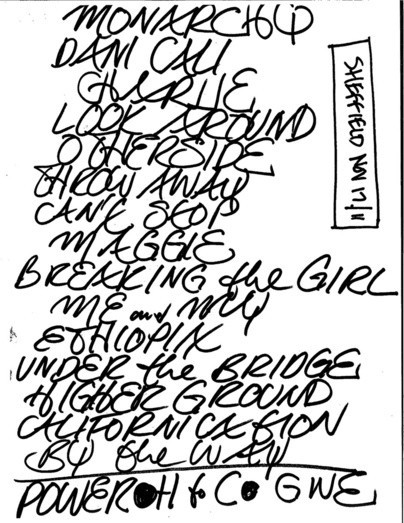 MONARCHY
DANI CALI
CHARLIE
LOOK AROUND
OTHERSIDE
THROW AWAY
CAN'T STOP
MAGGIE
BREAKING the GIRL
ME and MY
ETHIOPIA
UNDER the BRIDGE
HIGHER GROUND
CALIFORNICATION
By the WAY
POWEROH to CO GWE
SHEFFIELD NOV 17/11